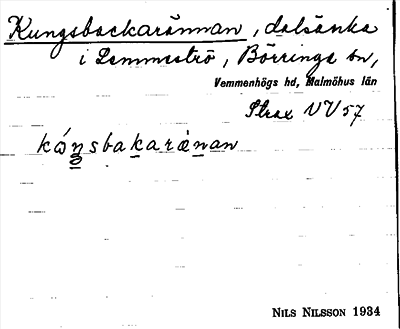 Kungsbackarännan, dalsänka
i Lemmeströ, Börringe sn,
Vemmenhögs hd, Malmöhus län
Strax VV 57
kóŋsbakaränan
NILS NILSSON 1934